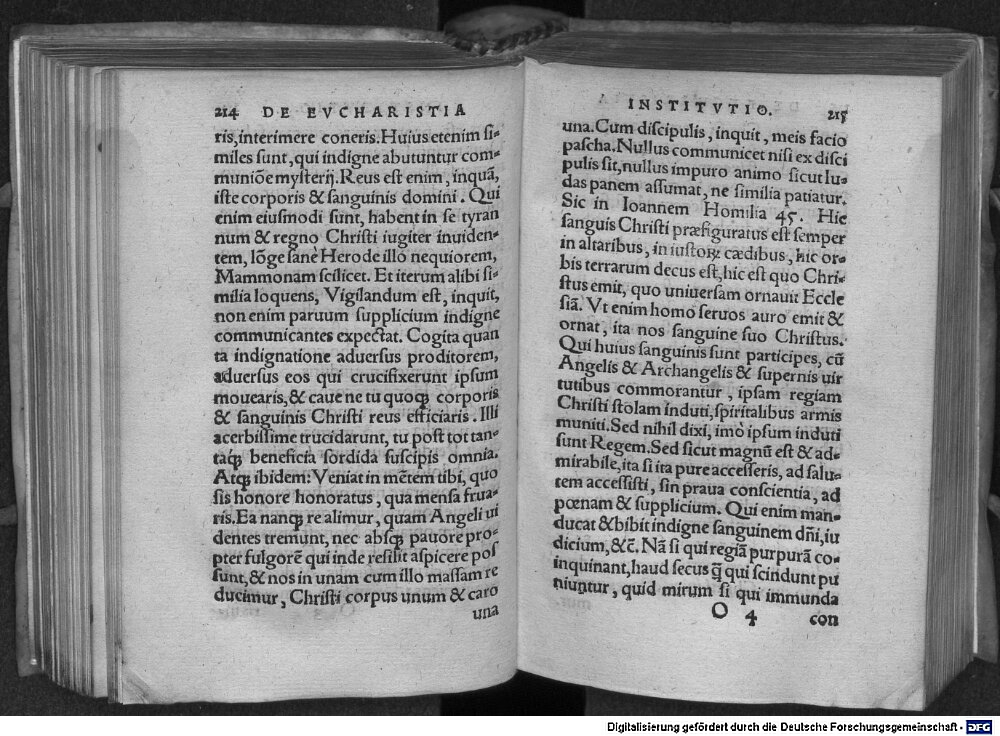 214 DE EVCHARISTIA
ris, interimere coneris. Huius etenim si-
miles sunt, qui indigne abutuntur com-
muniōe mysterij. Reus est enim, inquā,
iste corporis & sanguinis domini. Qui
enim eiusmodi sunt, habent in se tyran
num & regno Christi iugiter inuiden-
tem, lōge sanè Herode illo nequiorem,
Mammonam scilicet. Et iterum alibi si-
milia loquens, Vigilandum est, inquit,
non enim paruum supplicium indigne
communicantes expectat. Cogita quan
ta indignatione aduersus proditorem,
aduersus eos qui crucifixerunt ipsum
mouearis, & caue ne tu quoqꝫ corporis
& sanguinis Christi reus efficiaris. Illi
acerbissime trucidarunt, tu post tot tan-
taqꝫ beneficia sordida suscipis omnia.
Atqꝫ ibidem: Veniat in mētem tibi, quo
sis honore honoratus, qua mensa frua-
ris. Ea nanqꝫ re alimur, quam Angeli ui
dentes tremunt, nec absqꝫ pauore pro-
pter fulgorē qui inde resilit aspicere pos
sunt, & nos in unam cum illo massam re
ducimur, Christi corpus unum & caro
una
INSTITVTIO. 215
una. Cum discipulis, inquit, meis facio
pascha. Nullus communicet nisi ex disci
pulis sit, nullus impuro animo sicut Iu-
das panem assumat, ne similia patiatur.
Sic in Ioannem Homilia 45. Hic
sanguis Christi præfiguratus est semper
in altaribus, in iustoꝝ cædibus, hic or-
bis terrarum decus est, hic est quo Chri-
stus emit, quo uniuersam ornauit Eccle
siā. Vt enim homo seruos auro emit &
ornat, ita nos sanguine suo Christus.
Qui huius sanguinis sunt participes, cū
Angelis & Archangelis & supernis uir
tutibus commorantur, ipsam regiam
Christi stolam induti, spiritalibus armis
muniti. Sed nihil dixi, imò ipsum induti
sunt Regem. Sed sicut magnū est & ad-
mirabile, ita si ita pure accesseris, ad salu-
tem accessisti, sin praua conscientia, ad
pœnam & supplicium. Qui enim man-
ducat & bibit indigne sanguinem dn̄i, iu
dicium, &c̄. Nā si qui regiā purpurā co-
inquinant, haud secus q̄ qui scindunt pu
niuntur, quid mirum si qui immunda
O 4 con
Digitalisierung gefördert durch die Deutsche Forschungsgemeinschaft - DFG